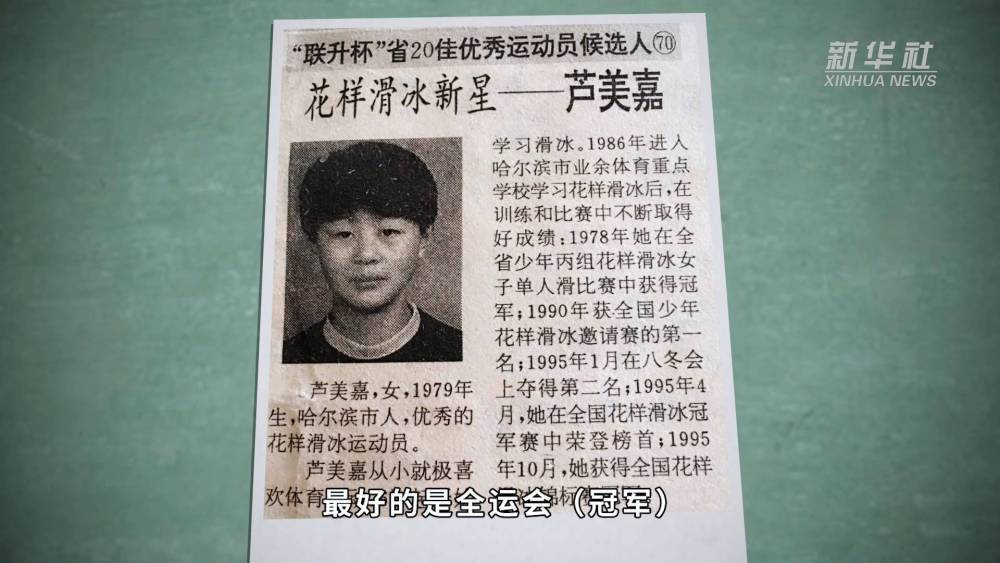 "联升杯"省20佳优秀运动员候选人⑦⓪
花样滑冰新星——芦美嘉
新华社
XINHUA NEWS
芦美嘉,女,1979年
生,哈尔滨市人,优秀的
花样滑冰运动员。
芦美嘉从小就极喜
欢体育
学习滑冰。1986年进入
哈尔滨市业余体育重点
学校学习花样滑冰后,在
训练和比赛中不断取得
好成绩:1978年她在全
省少年丙组花样滑冰女
子单人滑比赛中获得冠
军;1990年获全国少年
花样滑冰邀请赛的第一
名;1995年1月在八冬会
上夺得第二名;1995年4
月,她在全国花样滑冰冠
军赛中荣登榜首;1995
年10月,她获得全国花样
最好的是全运会(冠军)